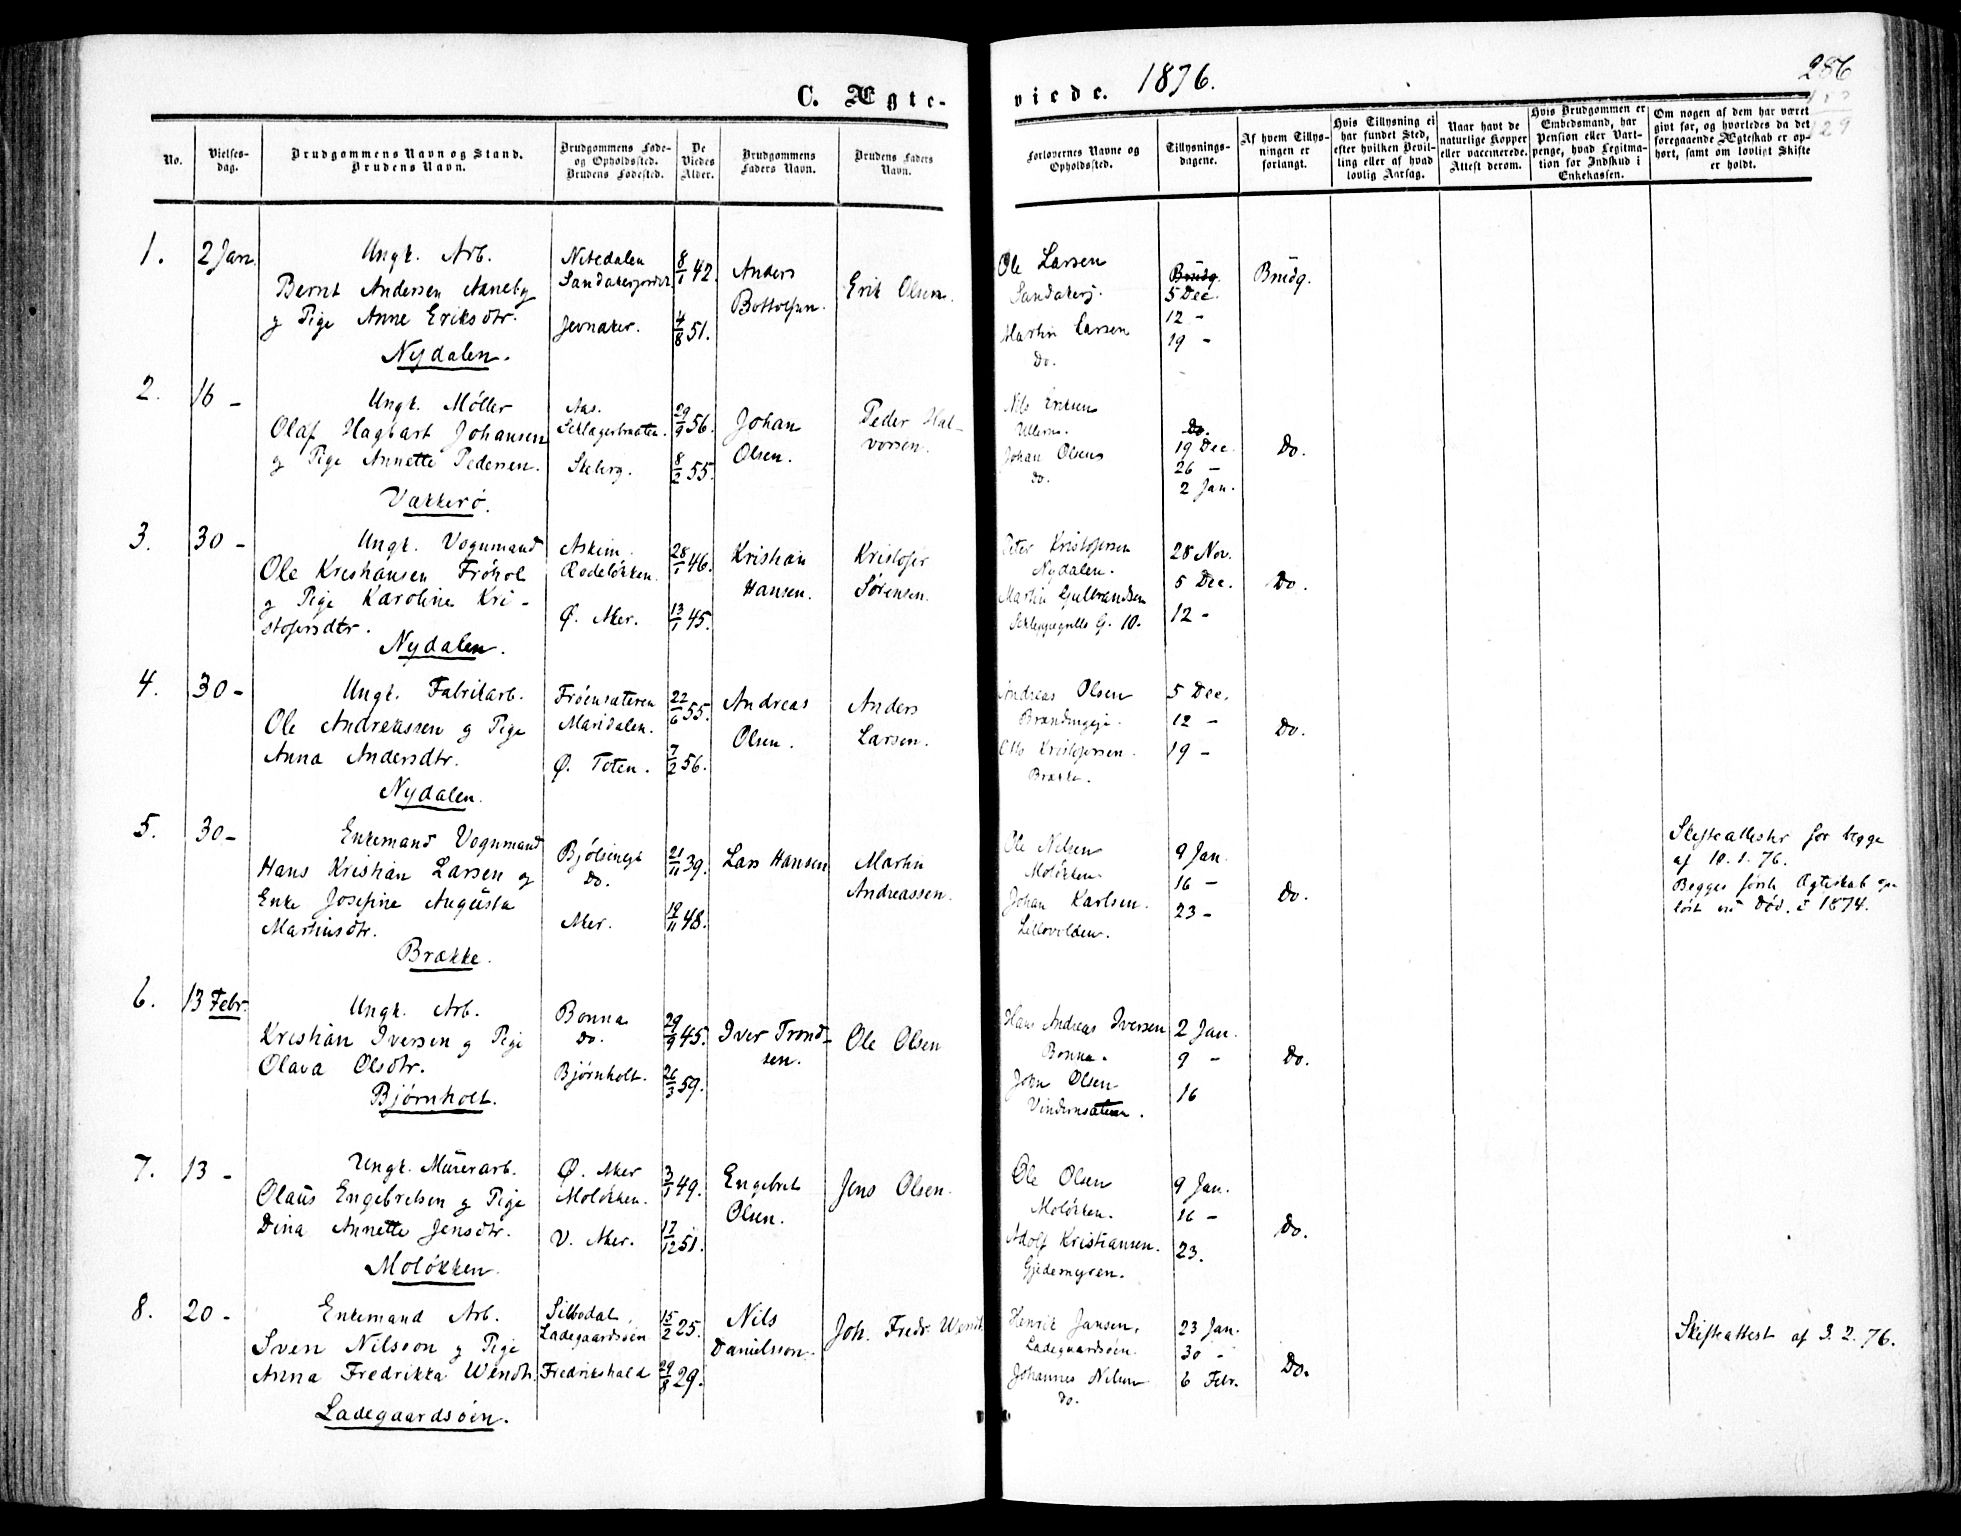 C. Ægte-
viede. 1876.
286
No.
Vielses-
dag.
Brudgommens Navn og Stand.
Brudens Navn.
Brudgommens Føde-
og Opholdssted.
Brudens Fødested.
De
Viedes
Alder.
Brudgommens
Faders Navn.
Brudens Faders
Navn.
Forlovernes Navne og
Opholdssted.
Tillysnings-
dagene.
Af hvem Tillys-
ningen er
forlangt.
Hvis Tillysning ei
har fundet Sted,
efter hvilken Bevil-
ling eller af hvad
lovlig Aarsag.
Naar havt de
naturlige Kopper
eller vaccinerede.
Attest derom.
Hvis Brudgommen er
Embedsmand, har
Pension eller Vart-
penge, hvad Legitima-
tion for Indskud i
Enkekassen.
Om nogen af dem har været
gift før, og hvorledes da det
foregaaende Ægteskab er op-
hørt, samt om lovligt Skifte
er holdt.
1.
2 Jan.
Ungk. Arb.
Bernt Andersen Aaneby
og Pige Anne Eriksdtr.
Nydalen.
Nitedalen
Sandakerjordet
Jevnaker.
8/1 42.
4/8 51.
Anders
Bottolfsen.
Erik Olsen.
Ole Larsen
Sandakerj.
Martin Larsen
Do.
Brudg.
5 Dec.
12 -
19 -
Brudg.
2.
16 -
Ungk. Møller
Olaf Hagbart Johansen
og Pige Annette Pedersen.
Vækkerø.
Aas.
Skiberg.
29/9 56.
8/2 55.
Johan
Olsen.
Peder Hal-
vorsen.
Nils Eriksen
Ullern.
Johan Olsen
do.
Do.
19 Dec.
26 -
2 Jan.
Do.
3.
30 -
Ungk. Vognmand
Ole Kristiansen Frøhol
og Pige Karoline Kri-
stofersdtr.
Nydalen.
Askim.
Rodeløkken.
Ø. Aker.
28/1 46.
13/1 45.
Kristian
Hansen.
Kristofer
Sørensen.
Peter Kristofersen
Nydalen.
Martin Gulbrandsen
Schleppegrells G. 10.
28 Nov.
5 Dec.
12 -
Do.
4.
30 -
Ungk. Fabrikarb.
Ole Andreassen og Pige
Anna Andersdtr.
Nydalen.
Frøensæteren
Maridalen.
Ø. Toten.
22/6 55.
7/2 56.
Andreas
Olsen.
Anders
Larsen.
Andreas Olsen
Otto Kristofersen.
Brække.
5 Dec.
12 -
19 -
Do.
5.
30 -
Enkemand Vognmand
Hans Kristian Larsen og
Enke Josefine Augusta
Martinsdtr.
Brække.
Bjølseneje
Do.
Aker.
21/11 39.
19/11 48.
Lars Hansen
Martin
Andreassen.
Ole Nilsen
Moløkken.
Johan Karlsen.
Lillovolden.
9 Jan.
16 -
23 -
Do.
Skifteattester for begge
af 10.1.76.
Begges første Ægteskab op-
løst ved Død. i 1874.
6.
13 Febr.
Ungk. Arb.
Kristian Iversen og Pige
Olava Olsdtr.
Bjørnholt.
Bonna
Do.
Bjørnholt.
29/9 45.
26/3 59.
Iver Trond-
sen.
Ole Olsen
Hans Andreas Iversen
Bonna.
John Olsen
Vindernsæteren.
2 Jan.
9 -
16
Do.
7.
13 -
Ungk. Murerarb.
Olaus Engebretsen og Pige
Dina Annette Jensdtr.
Moløkken.
Ø. Aker
Moløkken.
V. Aker.
3/1 49.
17/12 51.
Engebret
Olsen.
Jens Olsen.
Ole Olsen
Moløkken.
Adolf Kristiansen.
Gjedemyren.
9 Jan.
16 -
23.
Do.
8.
20 -
Enkemand Arb.
Sven Nilsson og Pige
Anna Fredrikka Wendt.
Ladegaardsøen.
Silbodal,
Ladegaardsøen
Fredrikshald
15/2 25.
29/8 29.
Nils
Danielsson.
Joh. Fredr. Wendt.
Henrik Jansen,
Ladegaardsøen.
Johannes Nilsen
do.
23 Jan.
30 -
6 Febr.
Do.
Skifteattest af 3.2.76.